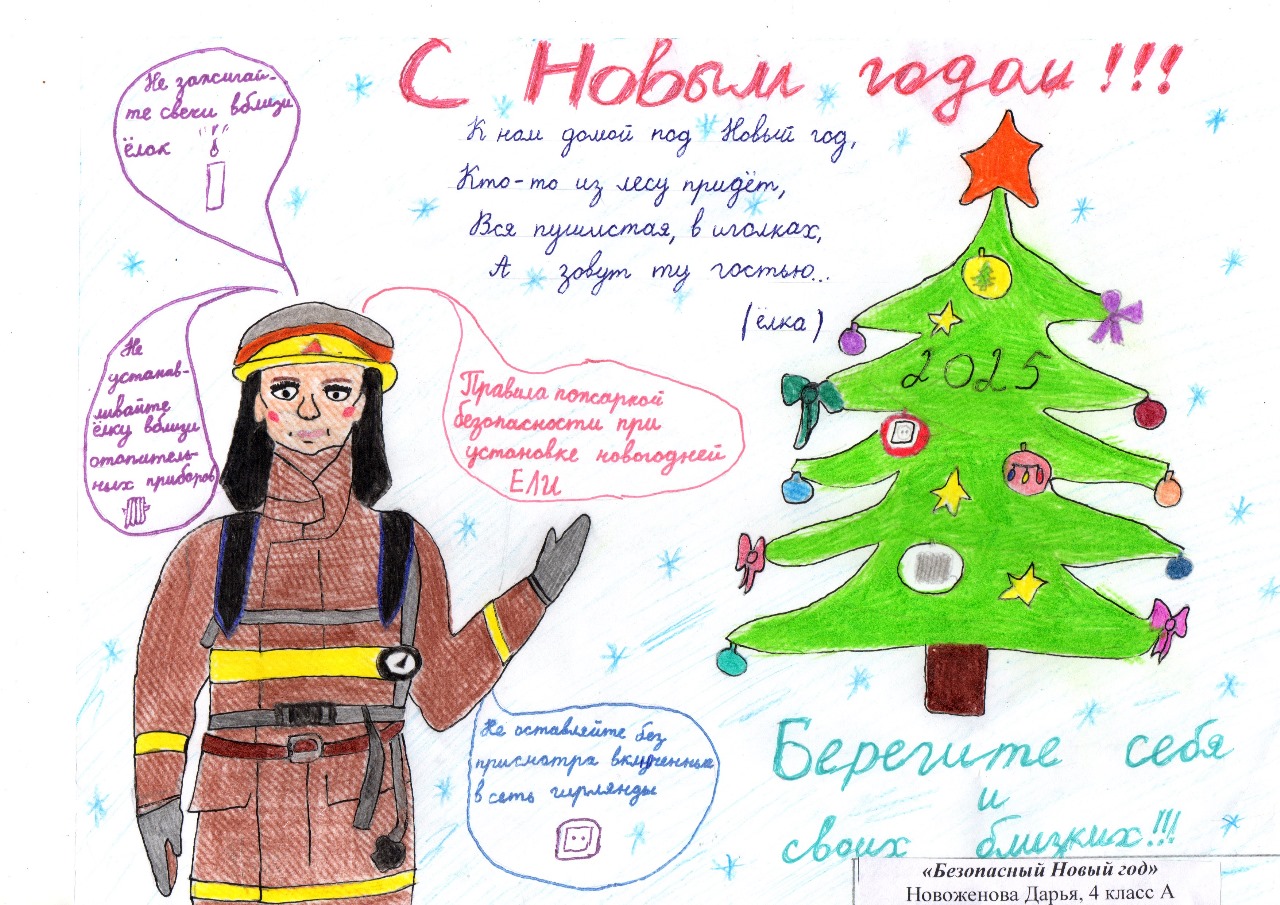 С Новым годом!!!
К нам домой под Новый год,
Кто-то из лесу придёт,
Вся пушистая, в иголках,
А зовут ту гостью...
(ёлка)
Не зажигай-
те свечи вблизи
ёлок
Не
устанав-
ливайте
ёлку вблизи
отопитель-
ных приборов
Правила пожаркой
безопасности при
установке новогодней
ЕЛИ
2025
Не оставляйте без
присмотра включенные
в сеть гирлянды
Берегите себя
и
своих близких!!!
«Безопасный Новый год»
Новоженова Дарья, 4 класс А